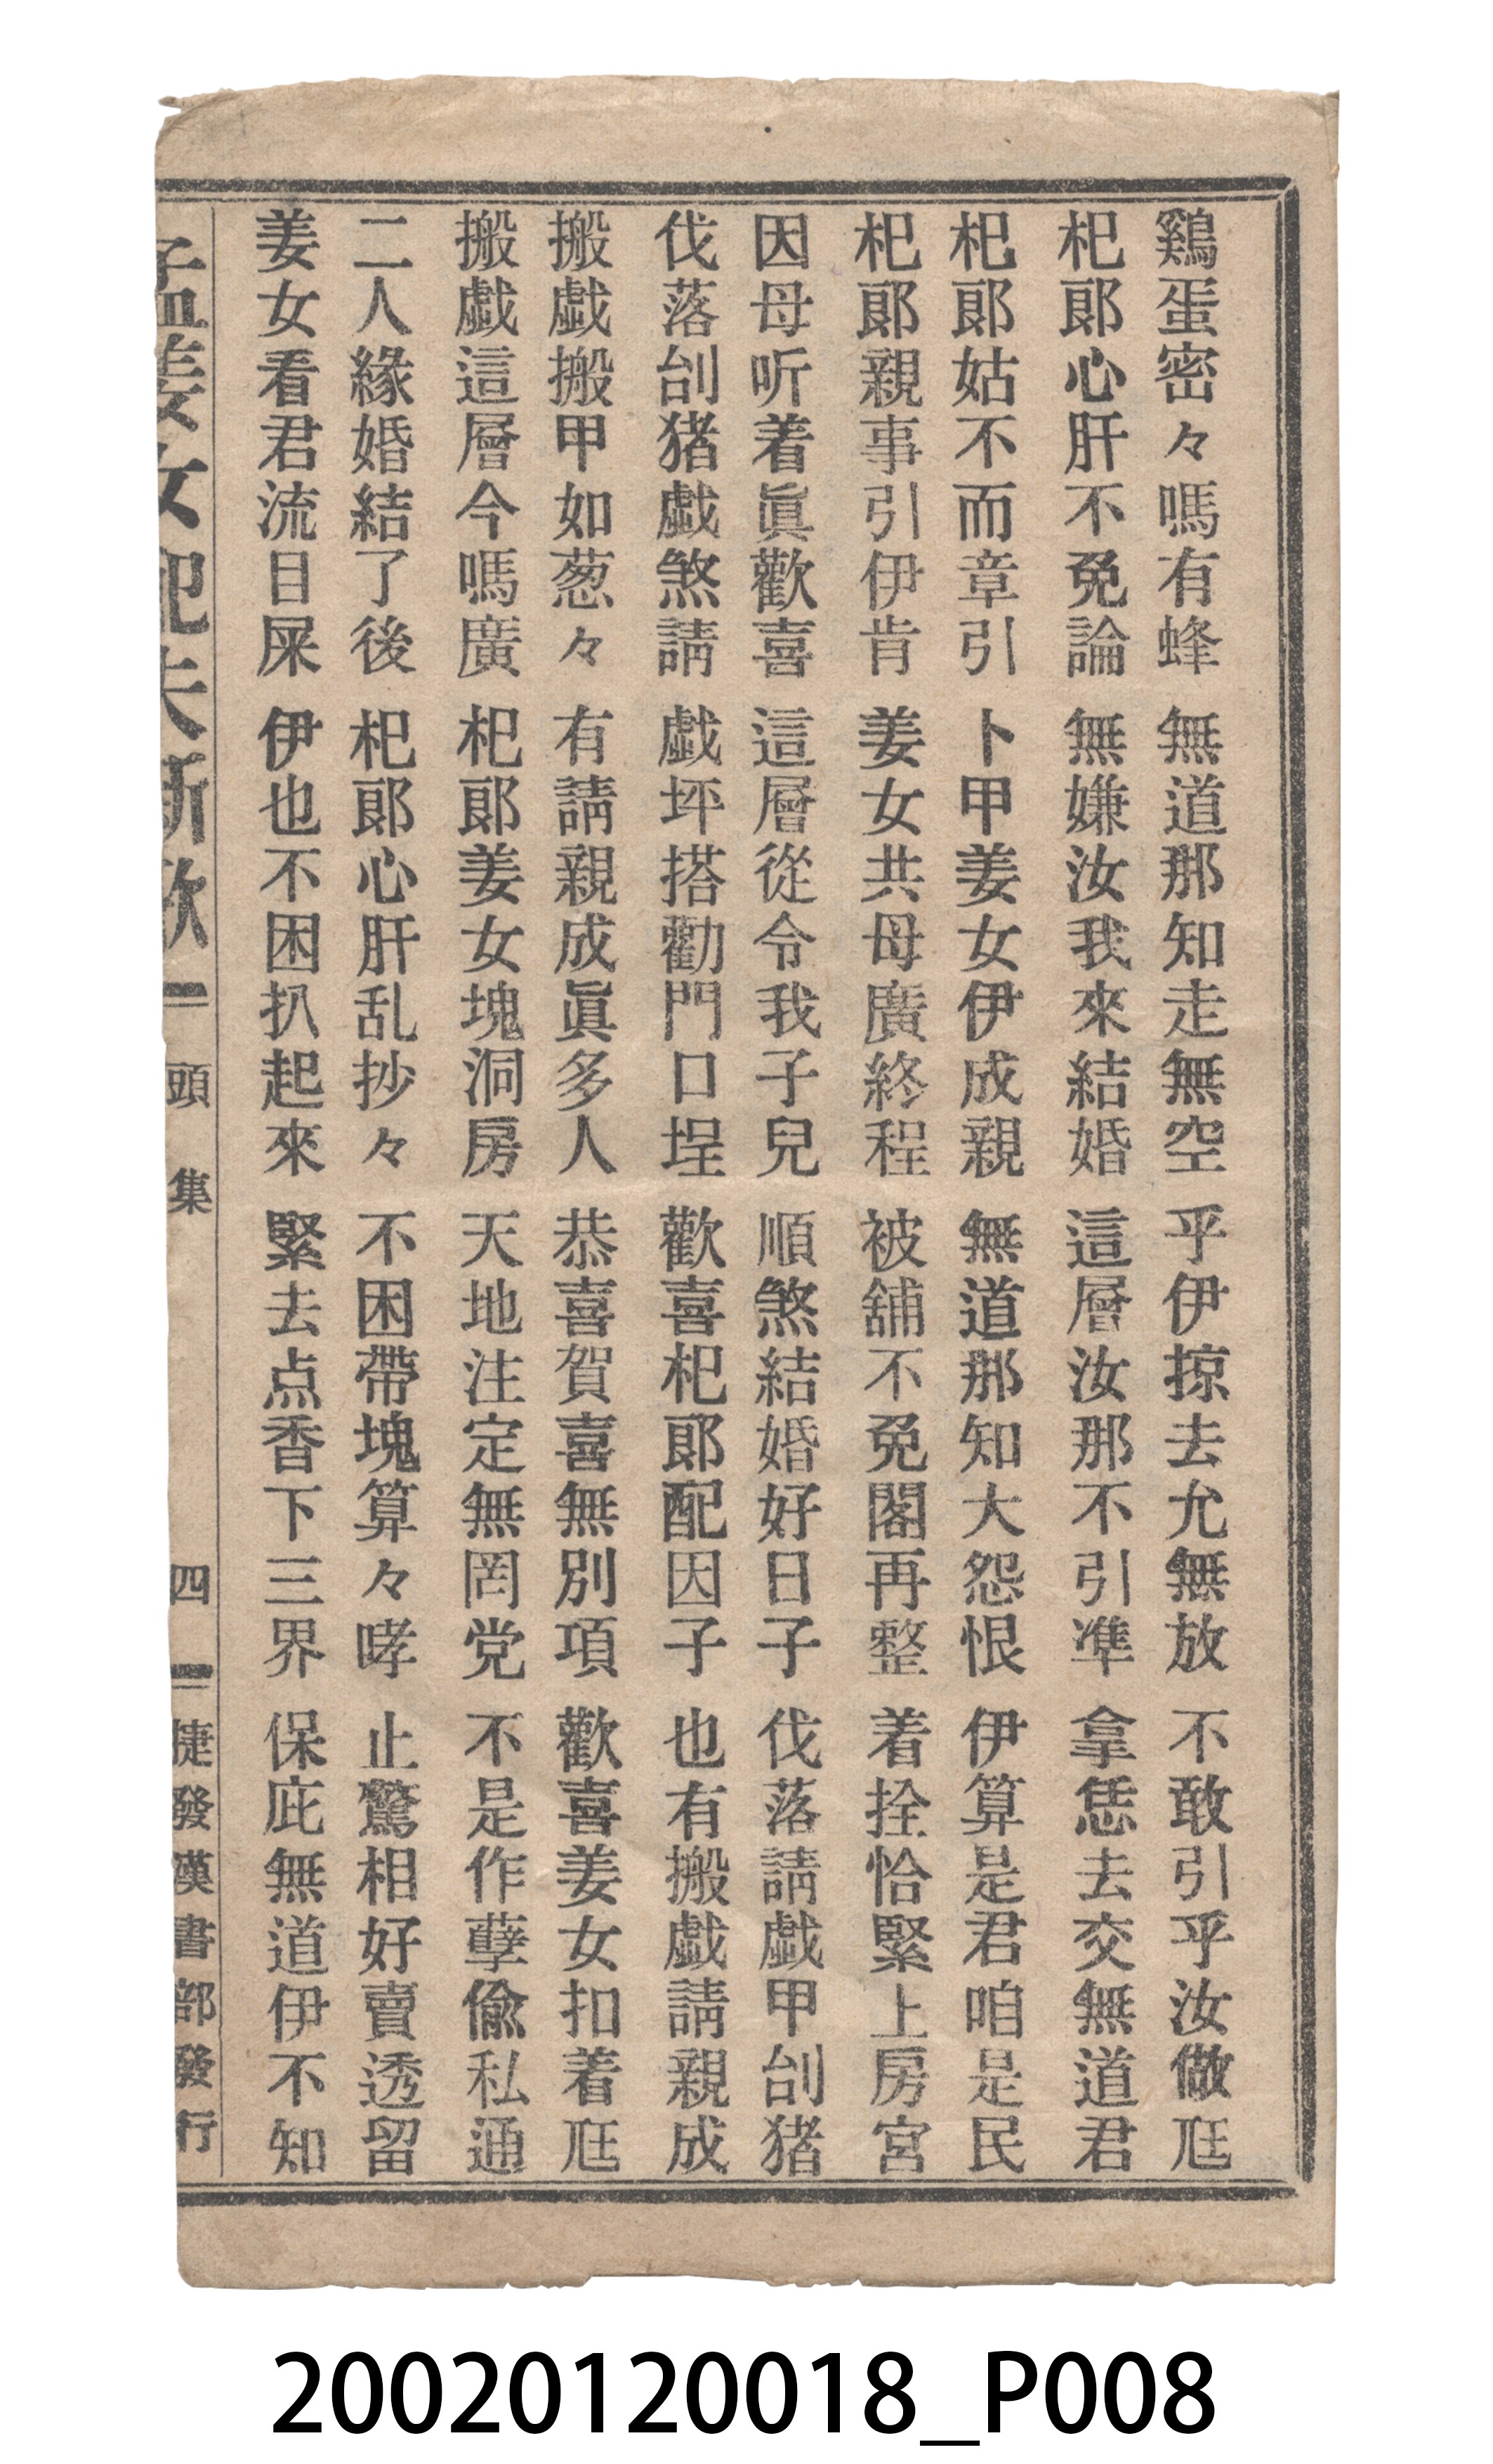 鷄蛋密々嗎有蜂　無道那知走無空　乎伊掠去允無放　不敢引乎汝做尫
杞郎心肝不免論　無嫌汝我來結婚　這層汝那不引凖　拿恁去交無道君
杞郎姑不而章引　卜甲姜女伊成親　無道那知大怨恨　伊算是君咱是民
杞郎親事引伊肯　姜女共母廣終程　被舖不免閣再整　着拴恰緊上房宮
因母听着眞歡喜　這層從令我子兒　順煞結婚好日子　伐落請戯甲刣猪
伐落刣猪戯煞請　戯坪搭勸門口埕　歡喜杞郎配因子　也有搬戯請親成
搬戯搬甲如葱々　有請親成眞多人　恭喜賀喜無別項　歡喜姜女扣着尫
搬戯這層今嗎廣　杞郎姜女塊洞房　天地注定無罔党　不是作孽偸私通
二人緣婚結了後　杞郎心肝乱抄々　不困帶塊算々哮　止驚相好賣透留
姜女看君流目屎　伊也不困扒起來　緊去点香下三界　保庇無道伊不知
孟姜女配夫新歌　頭集　四　捷發漢書部發行
20020120018_P008